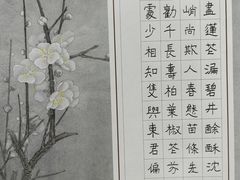 盡蓮花漏碧井酴酥沈
峭尚欺人春態苗條先
勸千長壽柏葉椒花芬
處少相知隻與東君偏